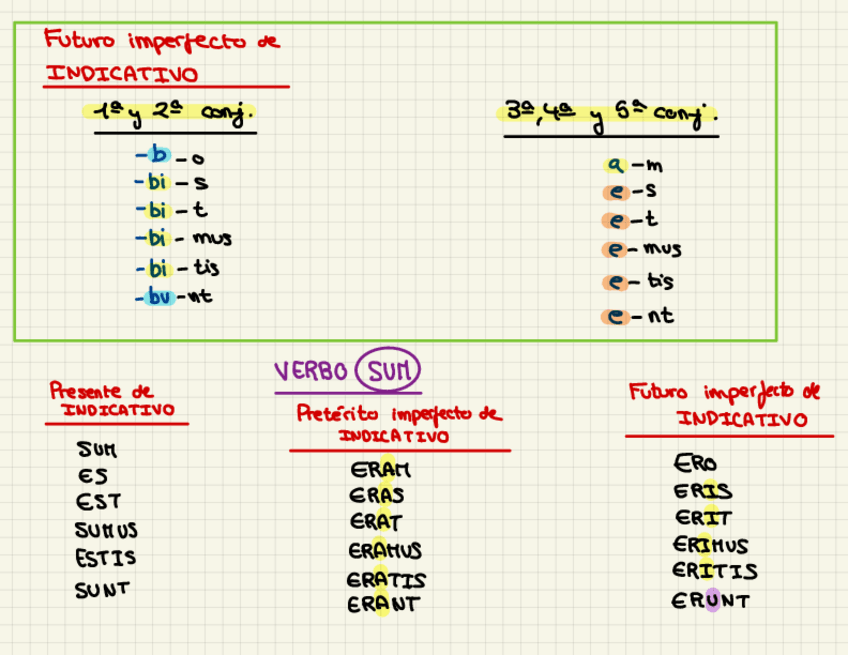 Futuro imperfecto de
INDICATIVO
1ª y 2ª conj.
-b-o
-bi-s
-bi-t
-bi-mus
-bi-tis
-bu-nt
3ª, 4ª y 5ª conj.
a-m
e-s
e-t
e-mus
e-tis
e-nt
VERBO SUM
Presente de
INDICATIVO
SUM
ES
EST
SUMUS
ESTIS
SUNT
Pretérito imperfecto de
INDICATIVO
ERAM
ERAS
ERAT
ERAMUS
ERATIS
ERANT
Futuro imperfecto de
INDICATIVO
ERO
ERIS
ERIT
ERIMUS
ERITIS
ERUNT